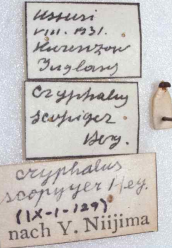 Ussuri
VIII. 1931.
Kurenzow
Juglans
Cryphalus
scopiger
Berg.
Cryphalus
scopyger Hey.
(IX-1-129)
nach Y. Niijima